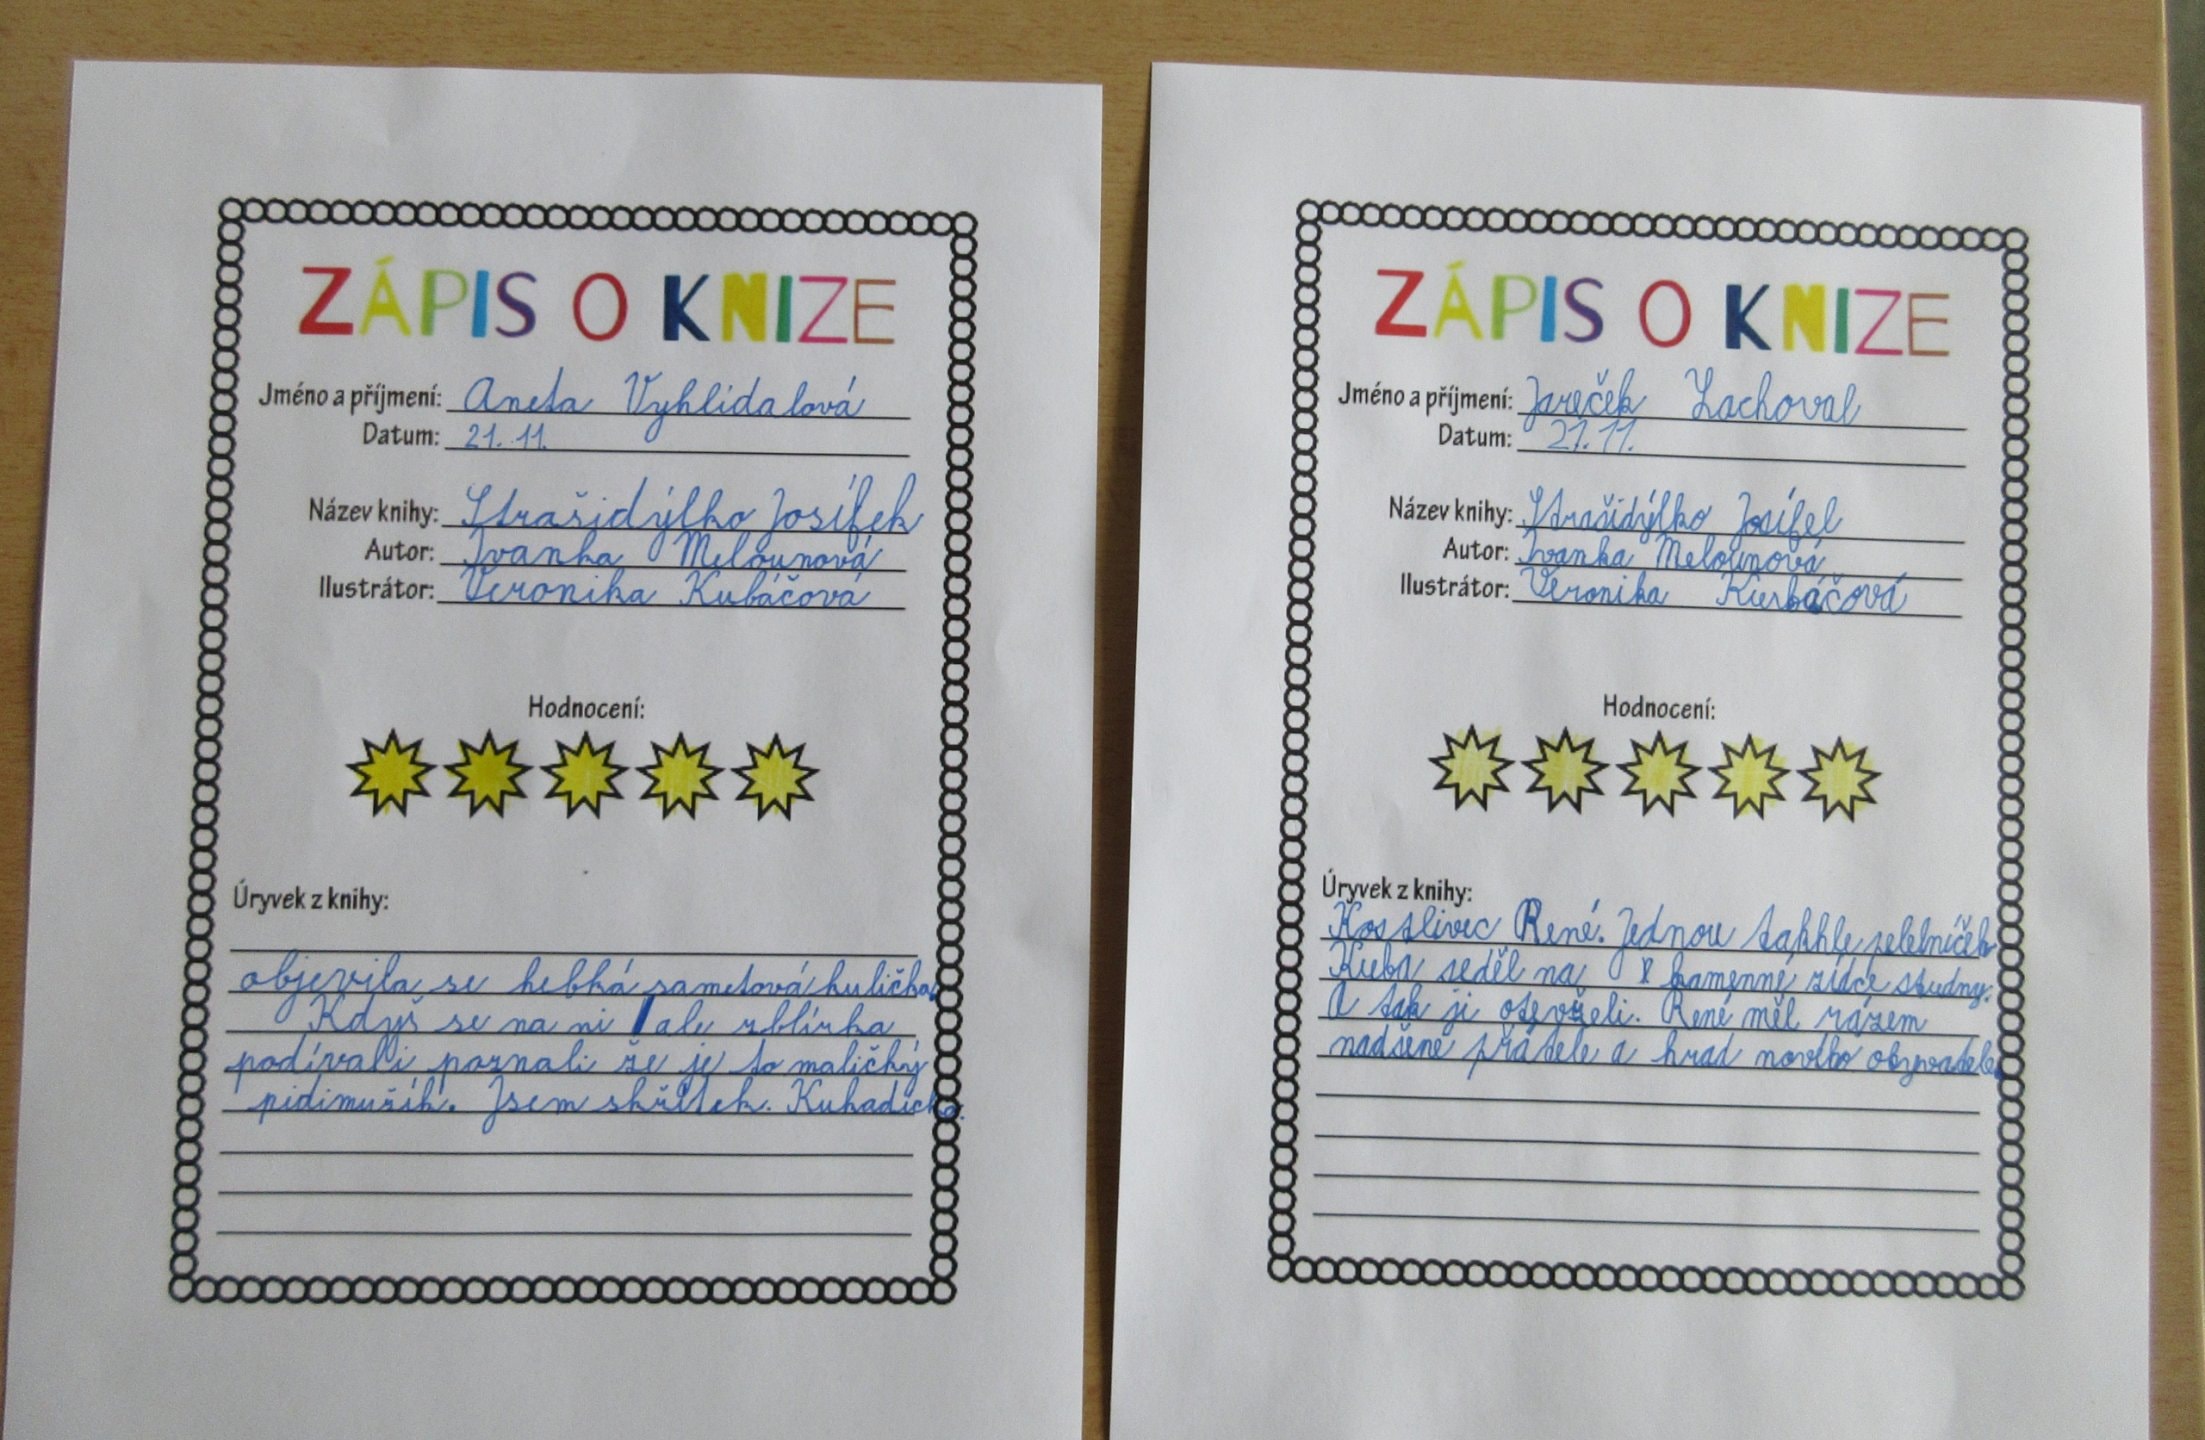 ZÁPIS O KNIZE
Jméno a příjmení: Aneta Vyhlídalová
Datum: 21. 11.
Název knihy: Strašidýlko Josífek
Autor: Ivanka Melounová
Ilustrátor: Veronika Kubáčová
Hodnocení:
Úryvek z knihy:
objevila se hebká sametová kulička.
Když se na ni ale zblízka
podívali poznali že je to maličký
pidimužík. Jsem skřítek. Kukadičko.
ZÁPIS O KNIZE
Jméno a příjmení: Jareček Lachoval
Datum: 21. 11.
Název knihy: Strašidýlko Josífel
Autor: Ivanka Melounová
Ilustrátor: Veronika Kubáčová
Hodnocení:
Úryvek z knihy:
Kostlivec René. Jednou takhle
Kuba seděl na kamenné zídce studny.
A tak ji otevřeli. René měl rázem
nadšené přátele a hrad nového obyvatele.